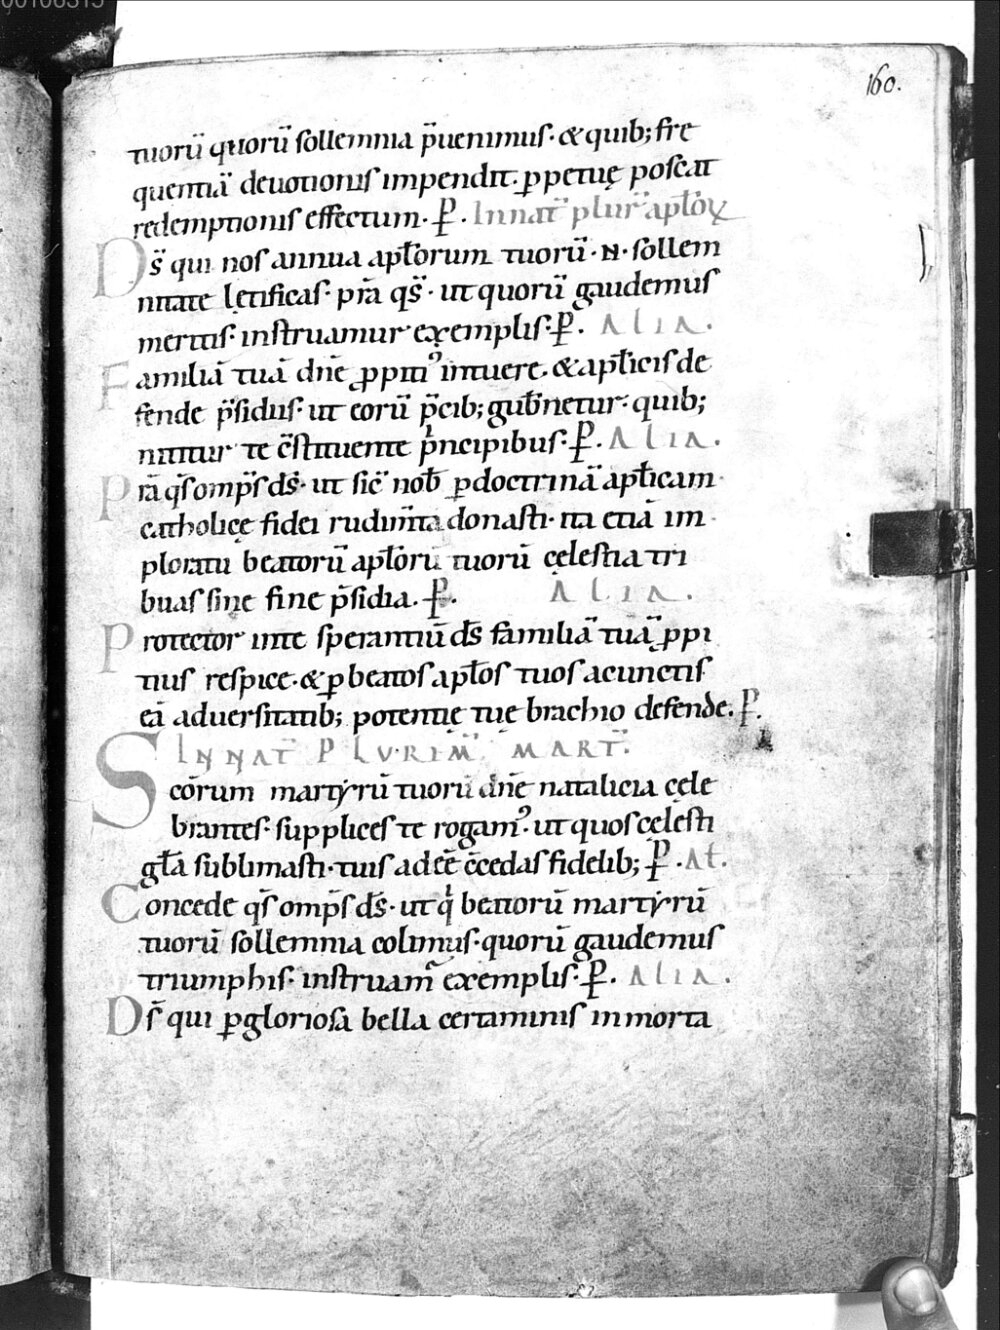 00106315
160.
tuorū quorū sollemnia p̄uenimus· & quib; fre
quentiā deuotionis impendit· ꝑpetuę poscat
redemptionis effectum· P̱. In nat̄ plur̄ apłoꝝ
Ds̄ qui nos annua apłorum tuorū· N· sollem
nitate lętificas· prā qs̄· ut quorū gaudemus
meritis· instruamur exemplis· P̱. ALIA.
Familiā tuā dn̄e ꝓpitiꝰ intuere· & apłicis de
fende p̄sidiis· ut eorū p̄cib; gub̄netur· quib;
nititur te c̄stituente pⁱncipibus· P̱. ALIA.
Prā qs̄ omps̄ ds̄· ut sic̄ nob̄ ꝑ doctrinā apłicam
catholicę fidei rudim̄ta donasti· ita etiā im
ploratu beatorū apłorū tuorū cęlestia tri
buas sine fine p̄sidia. P̱. ALIA.
Protector in te sperantiū ds̄ familiā tuā ꝓpi
tius respice· & ꝑ beatos apłos tuos a cunctis
eā aduersitatib; potentię tuę brachio defende. P̱.
IN NAT̄ PLURIM̄ MART̄.
Scōrum martyrū tuorū dn̄e natalicia cęle
brantes· supplices te rogamꝰ· ut quos cęlesti
gła sublimasti· tuis adeē c̄cedas fidelib; P̱. Ał.
Concede qs̄ omps̄ ds̄· ut qⁱ beatorū martyrū
tuorū sollemnia colimus· quorū gaudemus
triumphis· instruam̄ exemplis· P̱. ALIA.
Ds̄ qui ꝑ gloriosa bella certaminis in morta